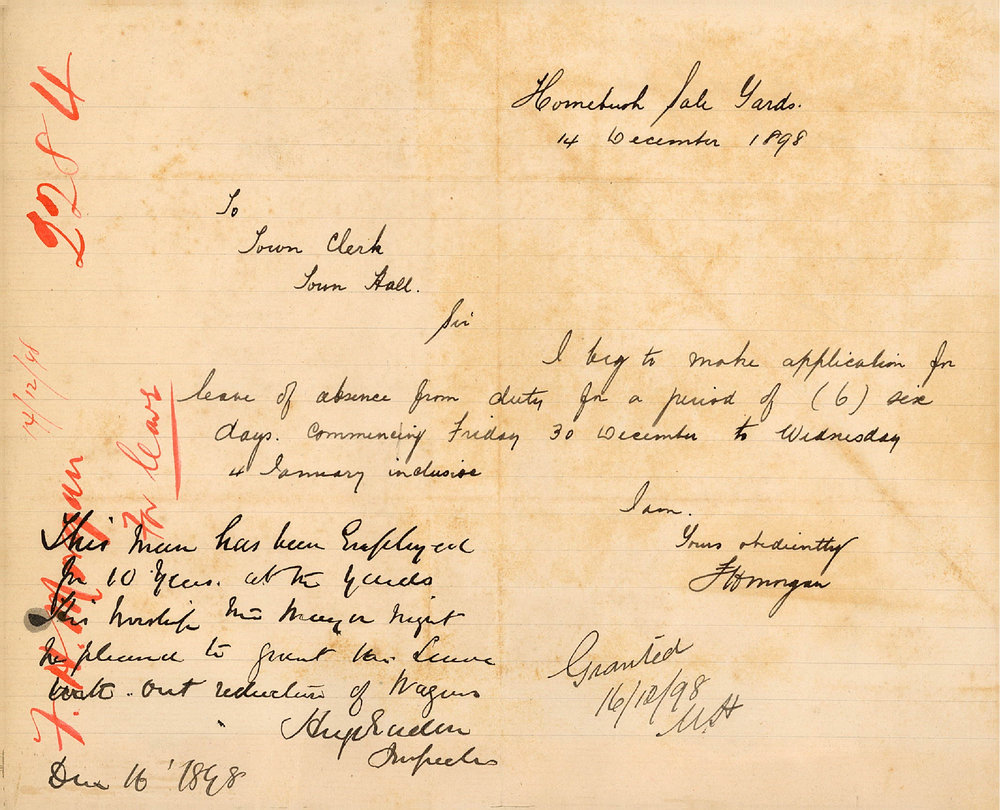 Homebush Sale Yards.
14 December 1898
To
Town Clerk
Town Hall.
Sir
I beg to make application for
leave of absence from duty for a period of (6) six
days. Commencing Friday 30 December to Wednesday
4 January inclusive
I am.
Yours obediently
F H Morgan
This man has been Employed
for 10 Years. at the yards
His Worship the Mayor might
be pleased to grant the Leave
with-out reduction of Wages
Inspector
Dec 16 1898
Granted
16/12/98
2284
14/12/98
F. H. Morgan
For leave